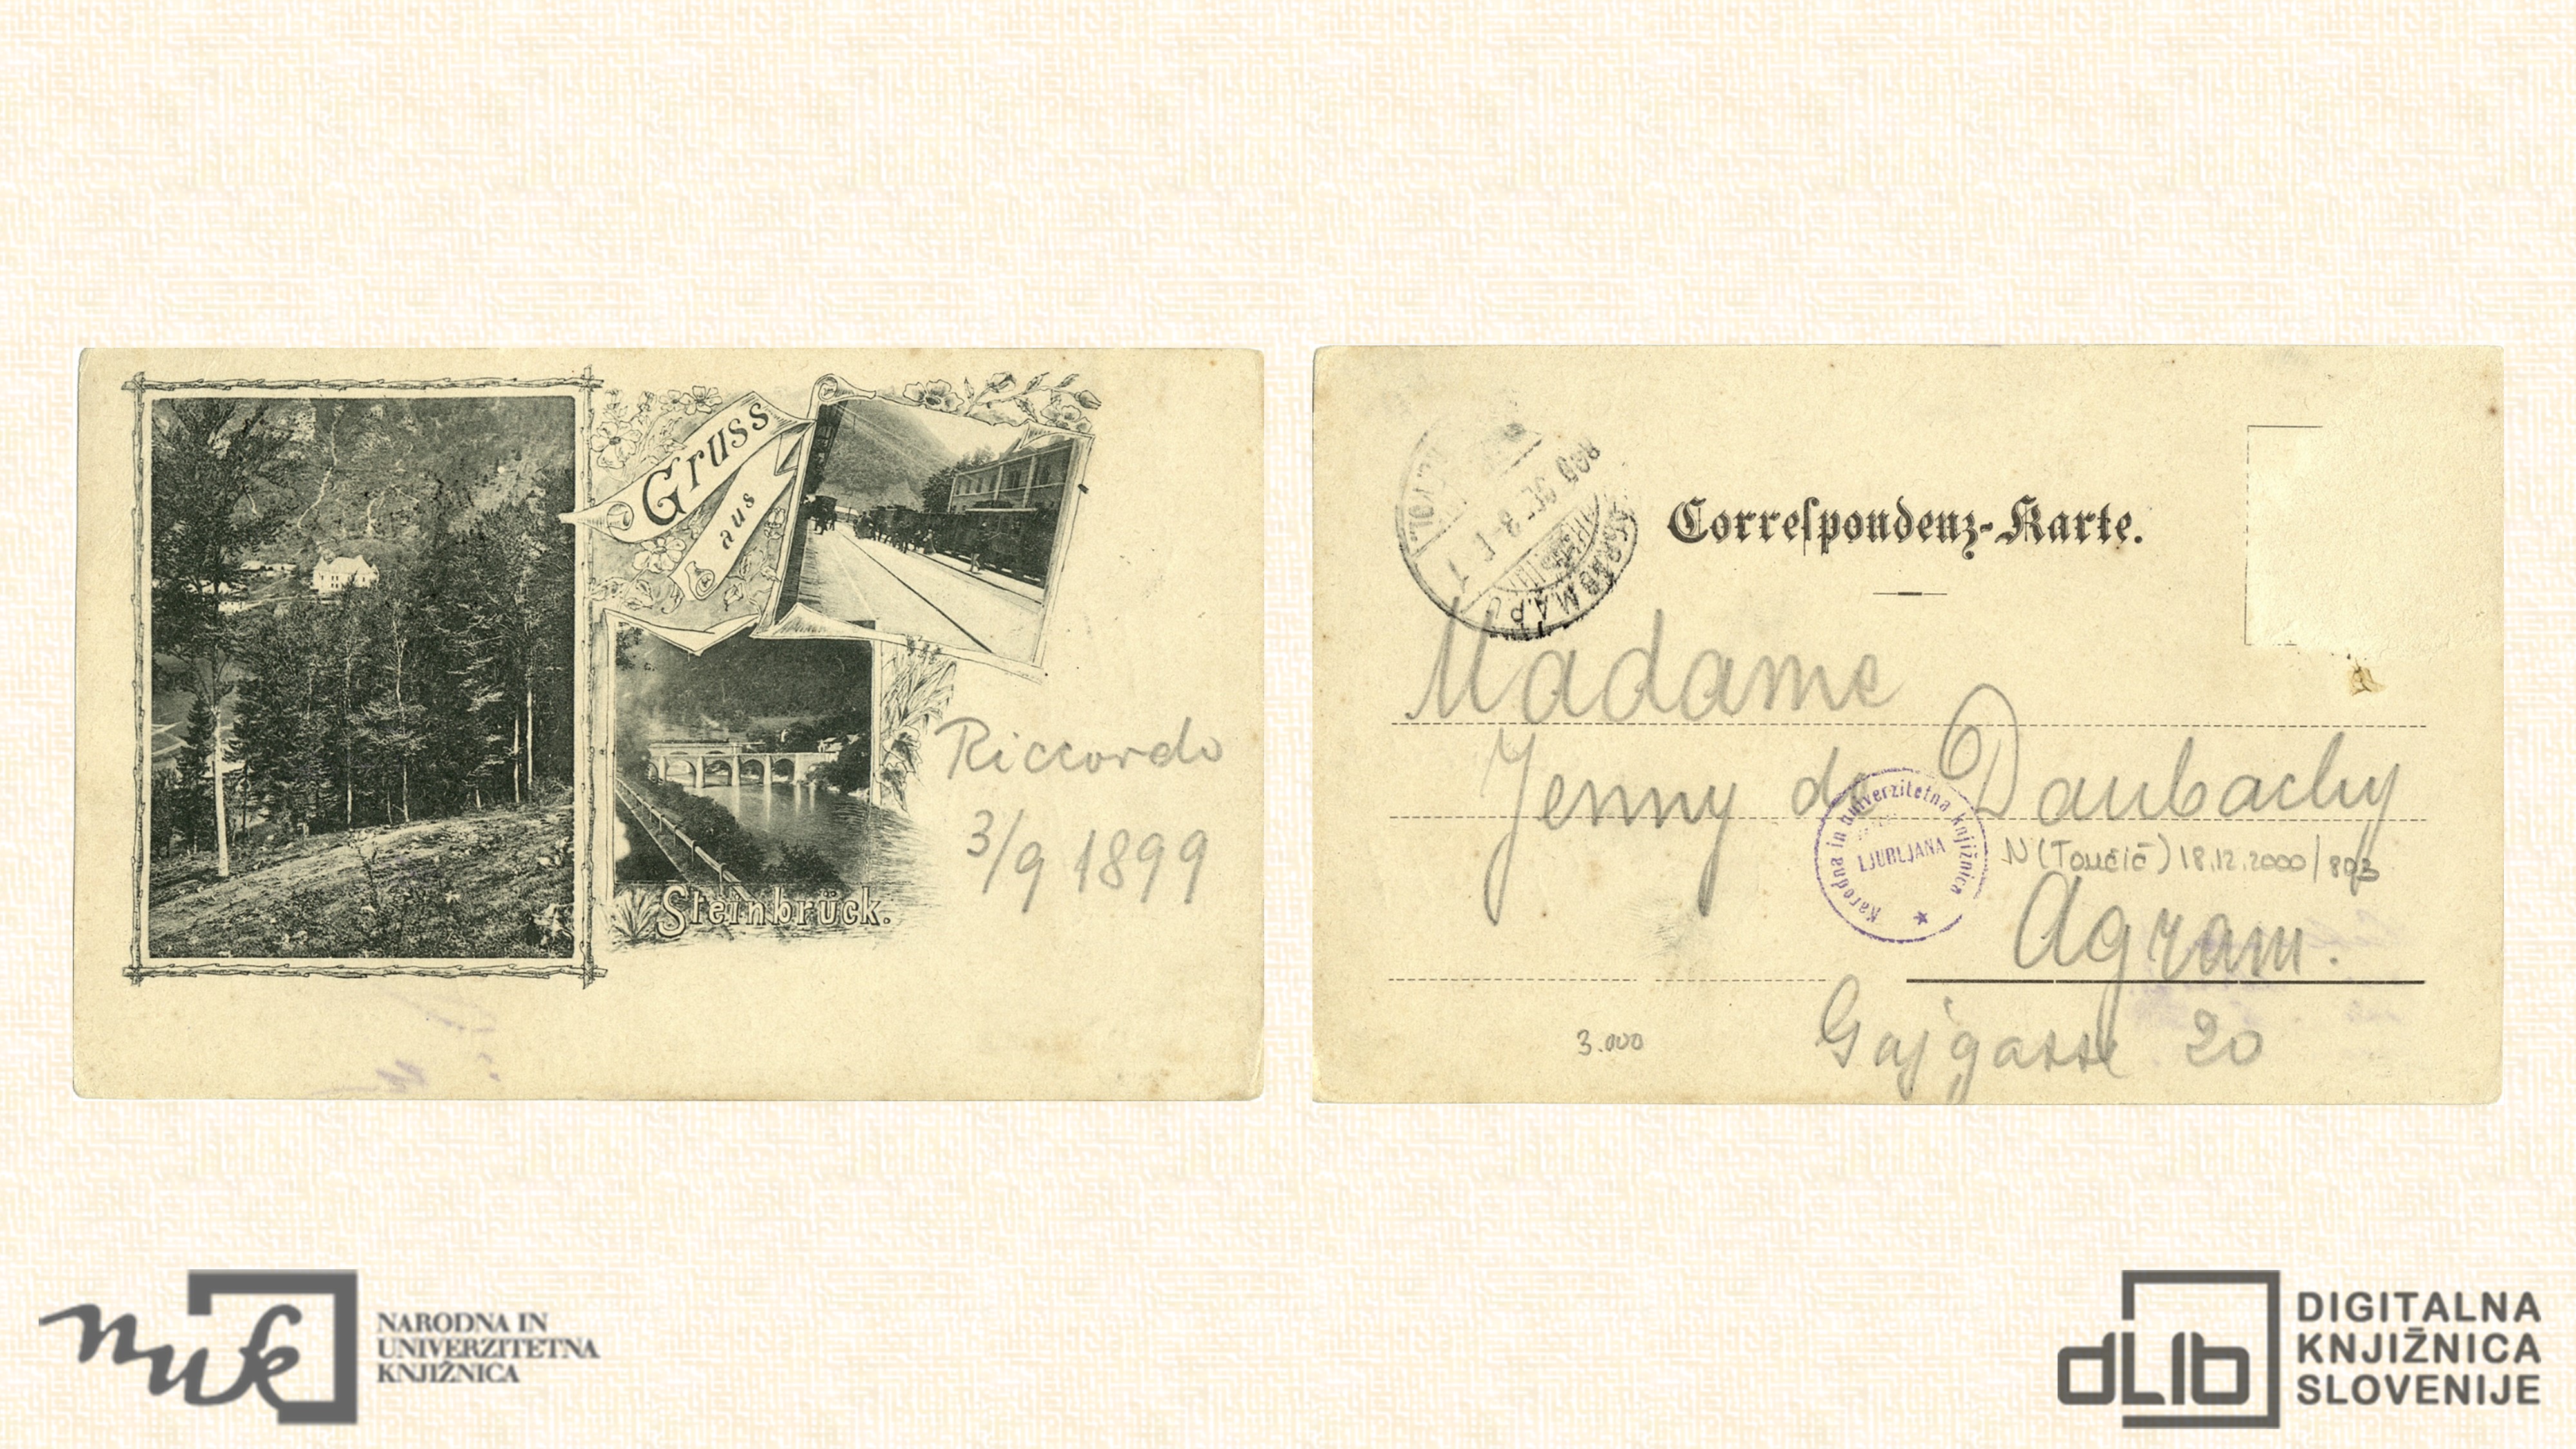 Gruss
aus
Steinbrück.
Riccordo
3/9 1899
Correſpondenz-Karte.
Madame
Jenny de Daubachy
Narodna in univerzitetna knjižnica
LJUBLJANA
N (Tončić) 18.12.2000/803
Agram.
Gajgasse 20
3.000
nuk
NARODNA IN
UNIVERZITETNA
KNJIŽNICA
dLib
DIGITALNA
KNJIŽNICA
SLOVENIJE